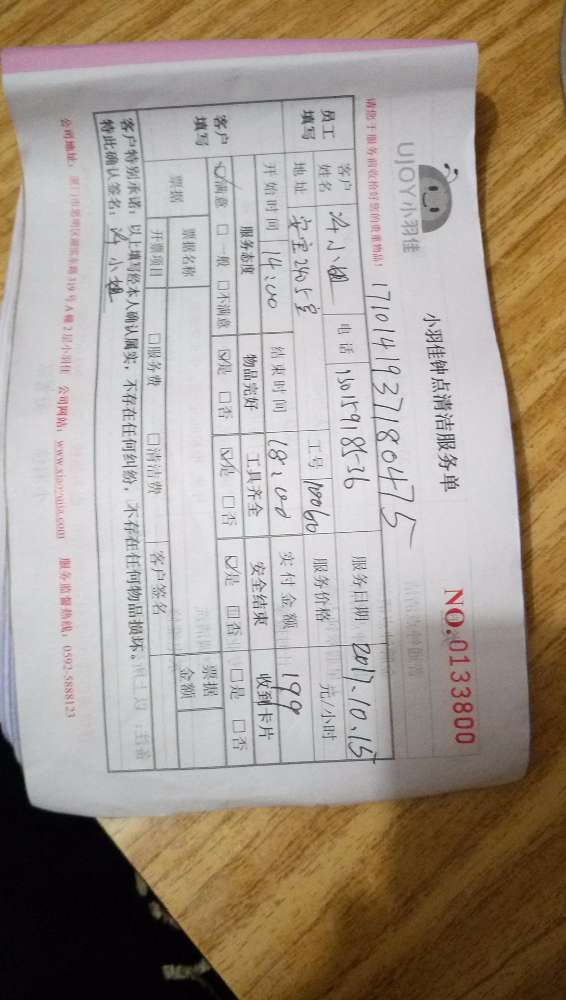 UJOY小羽佳
小羽佳钟点清洁服务单
NO.0133800
请您于服务前收拾好您的贵重物品!
17101419371780475
员工填写
客户姓名 冷小姐 电话 服务日期 2017.10.15
地址 工号 服务价格 元/小时
开始时间 14:00 结束时间 18:00 实付金额 199
客户填写
服务态度 物品完好 工具齐全 安全结束 收到卡片
☑满意 □一般 □不满意 ☑是 □否 ☑是 □否 ☑是 □否 □是 □否
票据 票据名称 票据金额
开票项目 □服务费 □清洁费 客户签名
客户特别承诺:以上填写经本人确认属实,不存在任何纠纷,不存在任何物品损坏。
特此确认签名:冷小姐
公司地址:厦门市思明区湖滨东路319号A幢2层小羽佳 公司网站:www.xiaoyujia.com 服务监督热线:0592-5888123